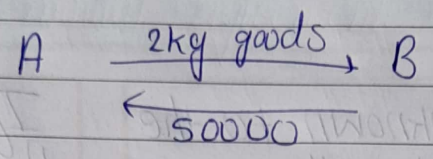 A 2kg goods B
50000